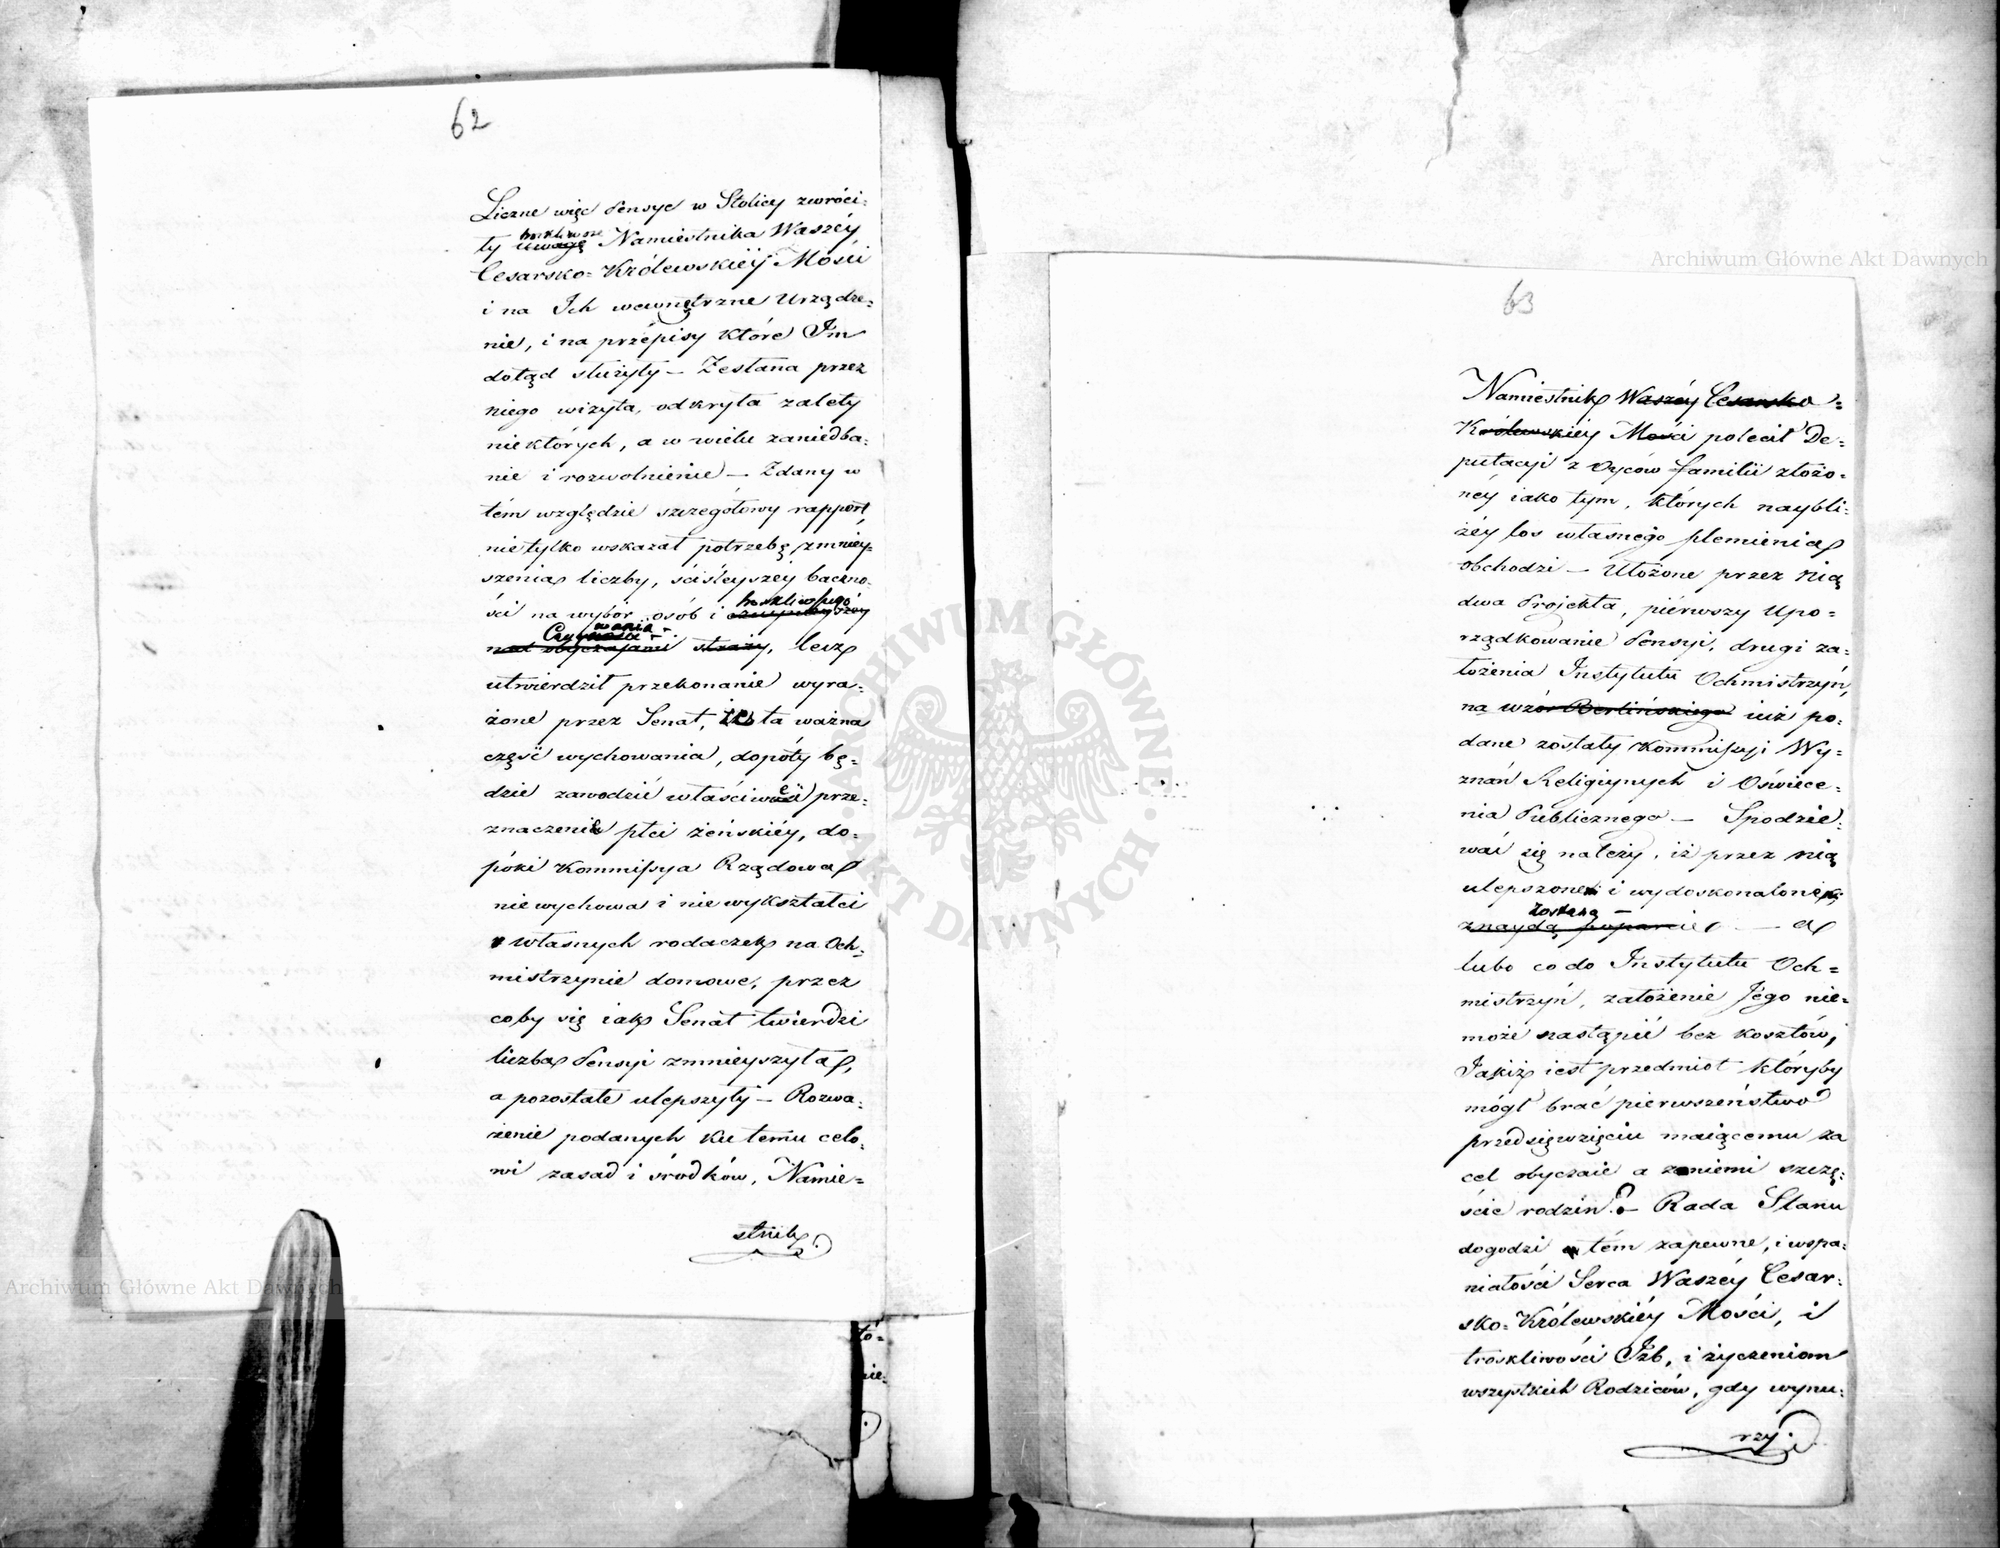 62
Liczne więc Pensye w Stolicy zwróci=
ły troskliwsze uwagę Namiestnika Waszéy
Cesarsko=Królewskiéy Mości
i na Ich wewnętrzne Urządze=
nie, i na przépisy które Im
dotąd służyły – Zesłana przez
niego wizyta, odkryła zalety
niektórych, a w wielu zaniedba=
nie i rozwolnienie – Zdany w
tém względzie szczegółowy rapport,
nie tylko wskazał potrzebę zmniéy=
szenia liczby, ściśleyszéy baczno=
ści na wybór osób i troskliwszego
Czuwania nad obyczajami straży, lecz
utwierdził przekonanie wyra=
żone przez Senat, że ta ważna
część wychowania, dopóty bę=
dzie zawodzić właściwe prze=
znaczenie płci żeńskiéy, do=
póki Kommissya Rządowa
nie wychowa i nie wykształci
własnych rodaczek na Och=
mistrzynie domowe, przez
coby się iak Senat twierdzi
liczba Pensyi zmnieyszyła,
a pozostałe ulepszyły – Rozwa=
żenie podanych ku temu celo=
wi zasad i środków, Namie=
stnik
63
Namiestnik Waszéy Cesarsko=
Królewskiéy Mości polecił De=
putacyi z Oyców familii złożo=
néy iako tym, których naybli=
żéy los własnego plemienia
obchodzi – Ułożone przez nią
dwa Projekta, piérwszy Upo=
rządkowanie Pensyi, drugi za=
łożenia Instytutu Ochmistrzyń,
na wzór Berlińskiego iuż po=
dane zostały Kommissyi Wy=
znań Religiynych i Oświece=
nia Publicznego – Spodzie=
wać się należy, iż przez nią
ulepszone i wydoskonalone
zostaną –
znaydą poparcie – a
lubo co do Instytutu Och=
mistrzyń, założenie Jégo nie=
może nastąpić bez kosztów,
Jakiż iest przedmiot któryby
mógł brać pierwszeństwo
przedsięwzięciu maiącemu za
cel obyczaie a z niemi szczę=
ście rodzin? – Rada Stanu
dogodzi tém zapewne, i wspa=
niałości Serca Waszéy Cesar=
sko=Królewskiéy Mości, i
troskliwości Izb, i życzeniom
wszystkich Rodziców, gdy wynu=
rzy
Archiwum Główne Akt Dawnych
Archiwum Główne Akt Dawnych
ARCHIWUM GŁÓWNE AKT DAWNYCH